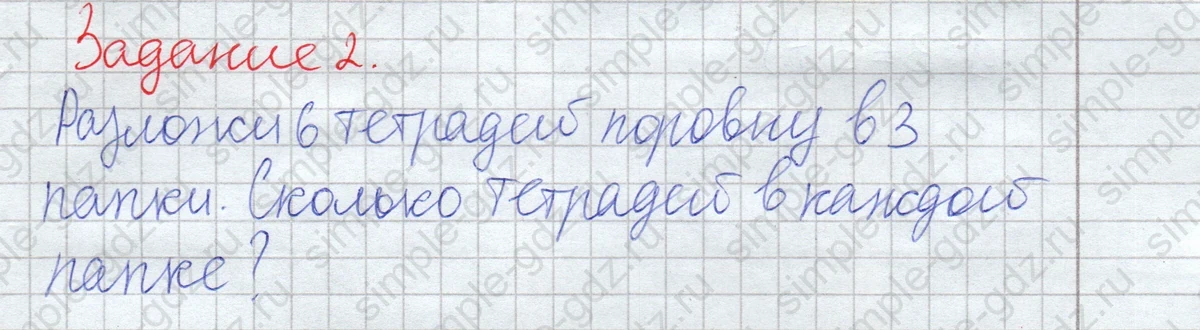 Задание 2.
Разложи 6 тетрадей поровну в 3
папки. Сколько тетрадей в каждой
папке?